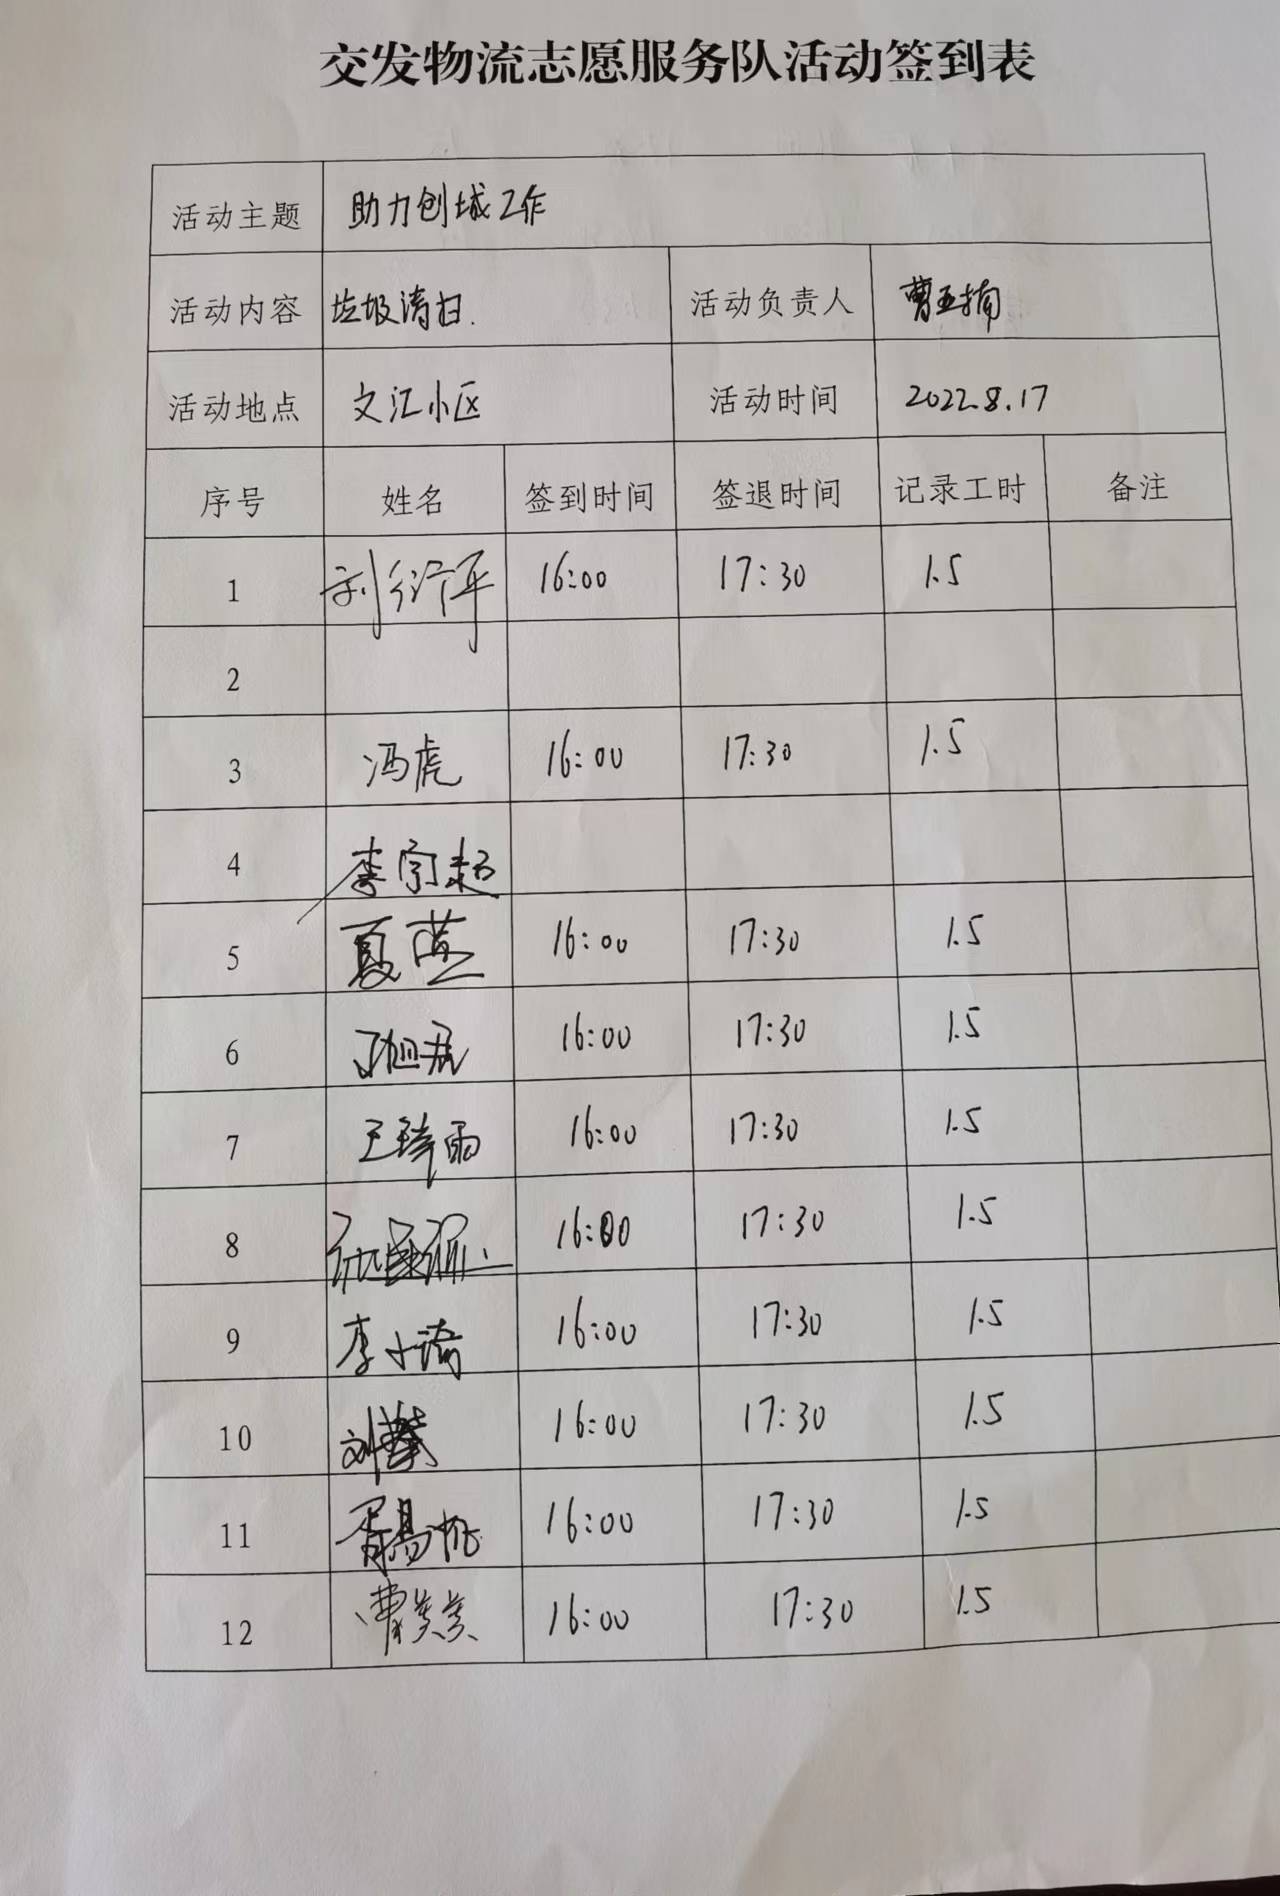 交发物流志愿服务队活动签到表
活动主题 助力创城工作
活动内容 垃圾清扫. 活动负责人 曹玉楠
活动地点 文汇小区 活动时间 2022.8.17
序号 姓名 签到时间 签退时间 记录工时 备注
1 16:00 17:30 1.5
2
3 冯虎 16:00 17:30 1.5
4 李宗超
5 夏蓝 16:00 17:30 1.5
6 16:00 17:30 1.5
7 16:00 17:30 1.5
8 16:00 17:30 1.5
9 16:00 17:30 1.5
10 16:00 17:30 1.5
11 16:00 17:30 1.5
12 16:00 17:30 1.5